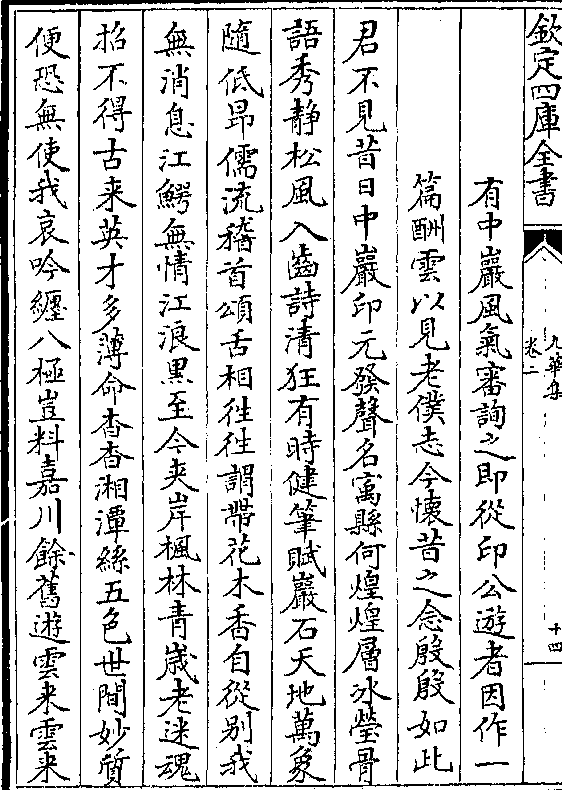 欽定四庫全書
九華集
卷二
十四
有中巖風氣審詢之即從印公遊者因作一
篇酬雲以見老僕志今懷昔之念殷殷如此
君不見昔日中巖印元發聲名寓縣何煌煌層氷瑩骨
語秀静松風入齒詩清狂有時健筆賦巖石天地萬象
隨低昂儒流稽首頌舌相徃徃謂帶花木香自從别我
無消息江鰐無情江浪黒至今夹岸楓林青歲老迷魂
招不得古来英才多薄命杳杳湘潭絲五色世間妙質
便恐無使我哀吟纒八極豈料嘉川餘舊逰雲来雲来